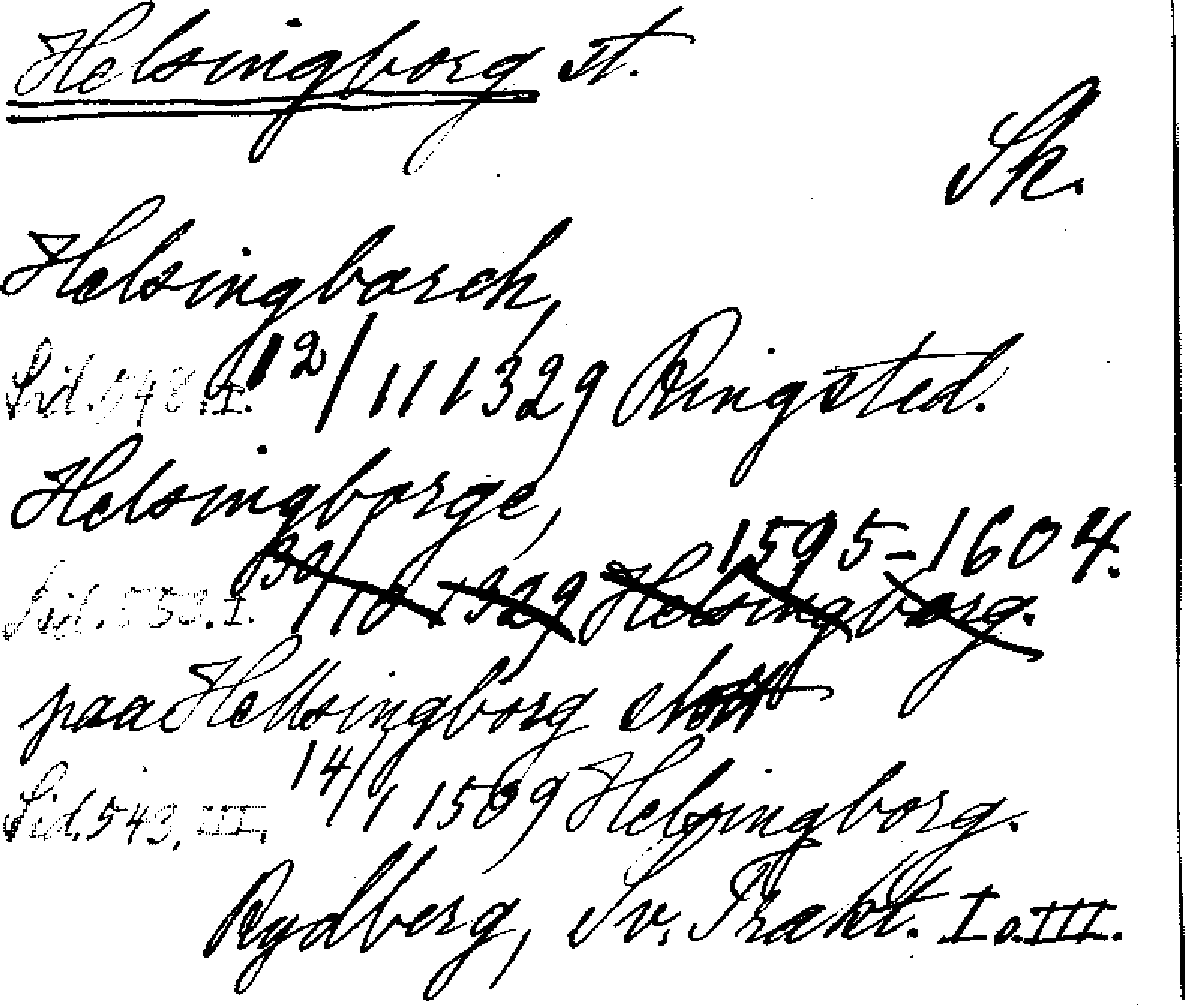 Helsingborg st.
Sk.
Helsingborch,
Sid. 548. I. 12/11 1329 Ringsted.
Helsingborge, 1595-1604.
Sid. 553. I. 30/10 1329 Helsingborg.
paa Hellsingborg slott
Sid. 549, III. 14/1 1509 Helsingborg.
Rydberg, Sv. Trakt. I o. III.